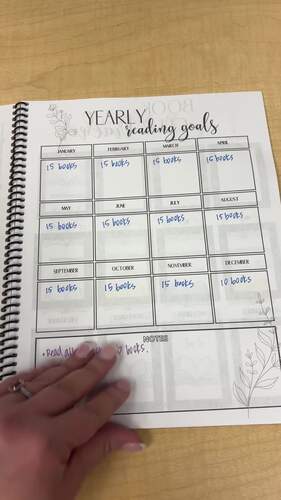 YEARLY
reading goals
JANUARY FEBRUARY MARCH APRIL
15 books 15 books 15 books 15 books
MAY JUNE JULY AUGUST
15 books 15 books 15 books 15 books
SEPTEMBER OCTOBER NOVEMBER DECEMBER
15 books 15 books 15 books 10 books
NOTES
• Read all books.